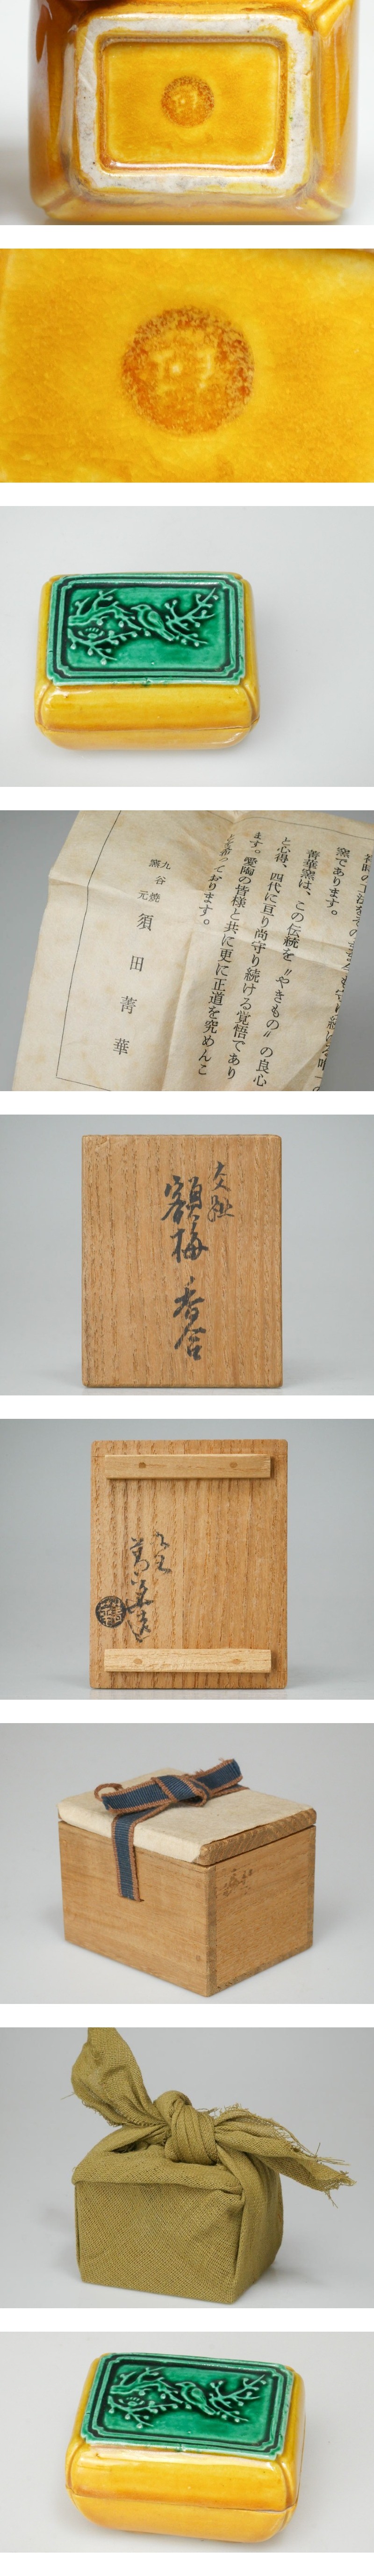 窯であります。
菁華窯は、この伝統を〃やきもの〃の良心
と心得、四代に亘り尚守り続ける覚悟であり
ます。愛陶の皆様と共に更に正道を究めんこ
とを希っております。
九谷焼
窯元
須田菁華
交趾
額梅 香合
九谷
菁華造